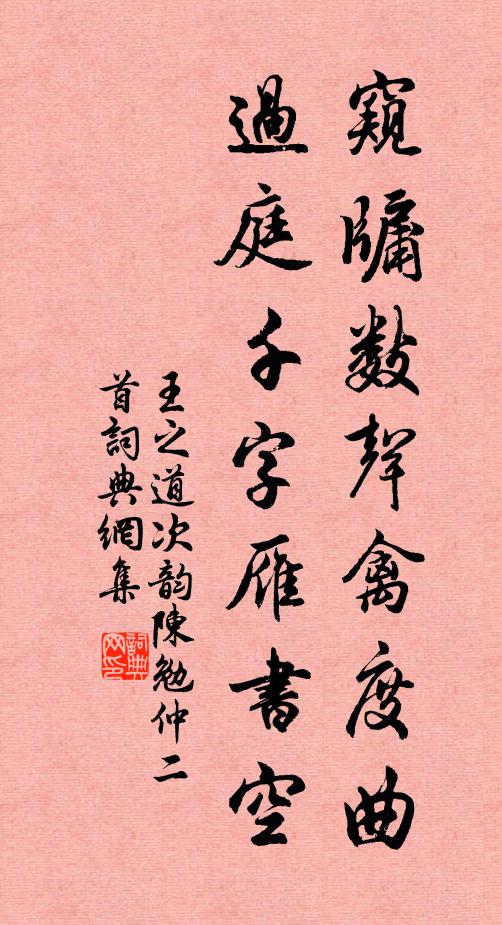 窺牖數聲禽度曲
過庭千字雁書空
王之道次韵陳勉仲二
首詞典網集
詞典網印